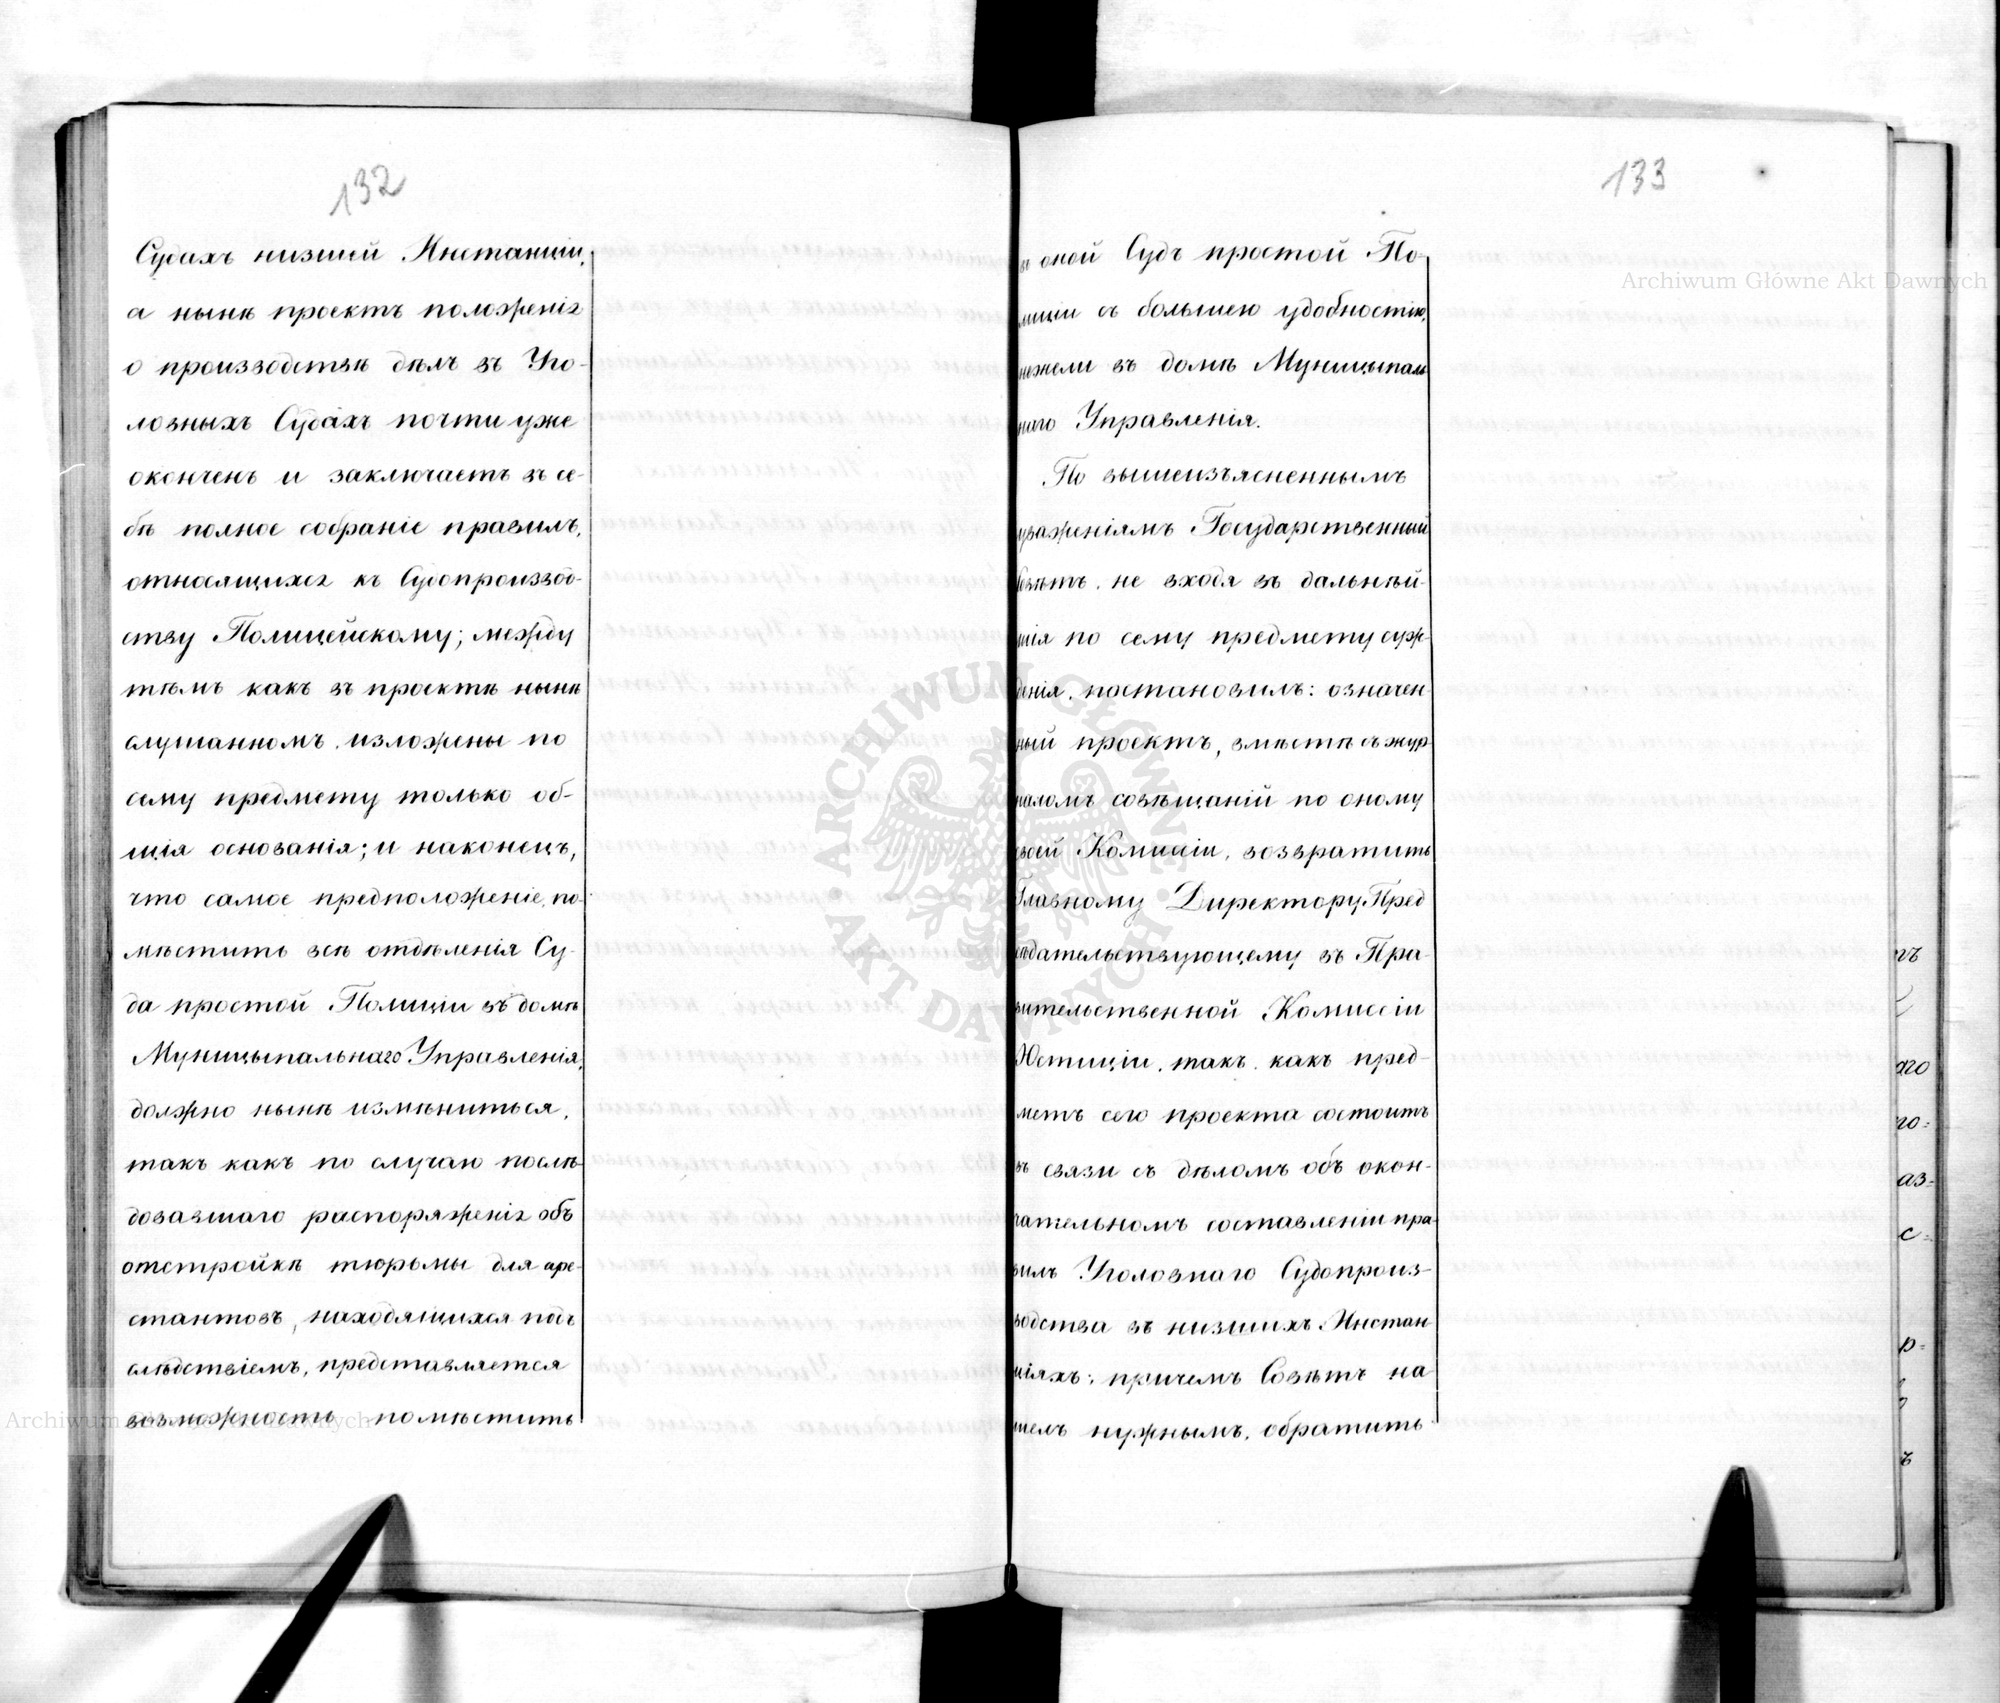 132
Судахъ низшей Инстанціи,
а нынѣ проектъ положенія
о производствѣ дѣлъ въ Уго-
ловныхъ Судахъ почти уже
оконченъ и заключаетъ въ се-
бѣ полное собраніе правилъ,
относящихся къ Судопроизвод-
ству Полицейскому; между
тѣмъ какъ въ проектѣ нынѣ
слушанномъ, изложены по
сему предмету только об-
щія основанія; и наконецъ,
что самое предположеніе, по-
мѣстить всѣ отдѣленія Су-
да простой Полиціи въ домѣ
Муниципальнаго Управленія,
должно нынѣ измѣниться,
такъ какъ по случаю послѣ-
довавшаго распоряженія объ
отстройкѣ тюрьмы для аре-
стантовъ, находящихся подъ
слѣдствіемъ, представляется
возможность помѣстить
133
въ оной Судъ простой По-
лиціи съ большею удобностію,
нежели въ домѣ Муниципаль
наго Управленія.
По вышеизъясненнымъ
уваженіямъ Государственный
Совѣтъ, не входя въ дальнѣй-
шія по сему предмету суж-
денія, постановилъ: означен-
ный проектъ, вмѣстѣ съ жур
наломъ совѣщаній по оному
своей Комисіи, возвратить
Главному Директору Пред
сѣдательствующему въ Пра-
вительственной Комиссіи
Юстиціи, такъ какъ пред-
метъ сего проекта состоитъ
въ связи съ дѣломъ объ окон-
чательномъ составленіи пра-
вилъ Уголовнаго Судопроиз-
водства въ низшихъ Инстан
ціяхъ; причемъ Совѣтъ на
шелъ нужнымъ, обратить
Archiwum Główne Akt Dawnych
ARCHIWUM GŁÓWNE AKT DAWNYCH